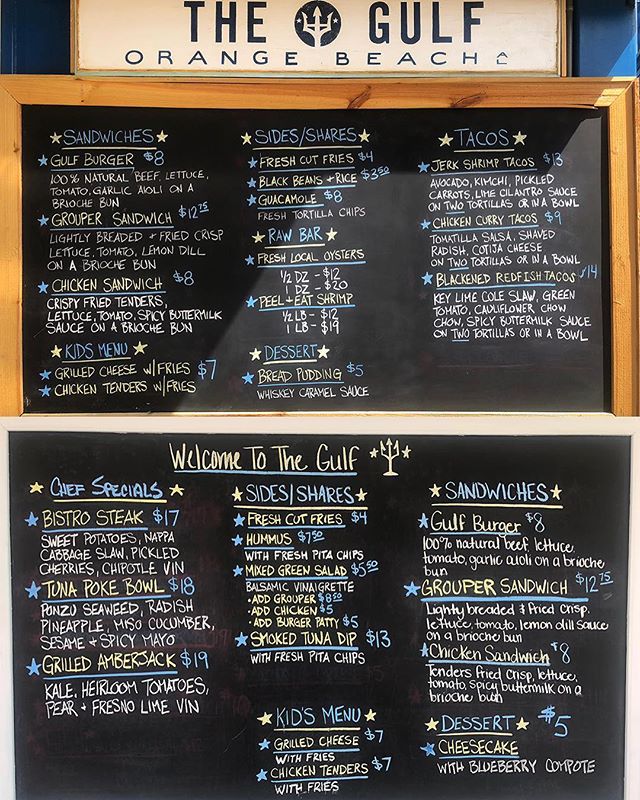 THE GULF
ORANGE BEACH
SANDWICHES
GULF BURGER $8
100% NATURAL BEEF, LETTUCE,
TOMATO, GARLIC AIOLI ON A
BRIOCHE BUN
GROUPER SANDWICH $12.75
LIGHTLY BREADED + FRIED CRISP
LETTUCE, TOMATO, LEMON DILL
ON A BRIOCHE BUN
CHICKEN SANDWICH $8
CRISPY FRIED TENDERS,
LETTUCE, TOMATO, SPICY BUTTERMILK
SAUCE ON A BRIOCHE BUN
KIDS MENU
GRILLED CHEESE W/FRIES $7
CHICKEN TENDERS W/FRIES
SIDES/SHARES
FRESH CUT FRIES $4
BLACK BEANS + RICE $3.50
GUACAMOLE $8
FRESH TORTILLA CHIPS
RAW BAR
FRESH LOCAL OYSTERS
1/2 DZ - $12
1 DZ - $20
PEEL + EAT SHRIMP
1/2 LB - $12
1 LB - $19
DESSERT
BREAD PUDDING $5
WHISKEY CARAMEL SAUCE
TACOS
JERK SHRIMP TACOS $13
AVOCADO, KIMCHI, PICKLED
CARROTS, LIME CILANTRO SAUCE
ON TWO TORTILLAS OR IN A BOWL
CHICKEN CURRY TACOS $9
TOMATILLA SALSA, SHAVED
RADISH, COTIJA CHEESE
ON TWO TORTILLAS OR IN A BOWL
BLACKENED REDFISH TACOS $14
KEY LIME COLE SLAW, GREEN
TOMATO, CAULIFLOWER CHOW
CHOW, SPICY BUTTERMILK SAUCE
ON TWO TORTILLAS OR IN A BOWL
Welcome To The Gulf
CHEF SPECIALS
BISTRO STEAK $17
SWEET POTATOES, NAPPA
CABBAGE SLAW, PICKLED
CHERRIES, CHIPOTLE VIN
TUNA POKE BOWL $18
PONZU SEAWEED, RADISH
PINEAPPLE, MISO CUCUMBER,
SESAME + SPICY MAYO
GRILLED AMBERJACK $19
KALE, HEIRLOOM TOMATOES,
PEAR + FRESNO LIME VIN
SIDES/SHARES
FRESH CUT FRIES $4
HUMMUS $7.50
WITH FRESH PITA CHIPS
MIXED GREEN SALAD $5.50
BALSAMIC VINAIGRETTE
• ADD GROUPER $8.50
• ADD CHICKEN $5
• ADD BURGER PATTY $5
SMOKED TUNA DIP $13
WITH FRESH PITA CHIPS
KID'S MENU
GRILLED CHEESE $7
WITH FRIES
CHICKEN TENDERS $7
WITH FRIES
SANDWICHES
Gulf Burger $8
100% natural beef, lettuce,
tomato, garlic aioli on a brioche
bun
GROUPER SANDWICH $12.75
Lightly breaded & fried crisp.
lettuce, tomato, lemon dill sauce
on a brioche bun
Chicken Sandwich $8
Tenders fried crisp, lettuce,
tomato, spicy buttermilk on a
brioche bun
DESSERT $5
CHEESECAKE
WITH BLUEBERRY COMPOTE